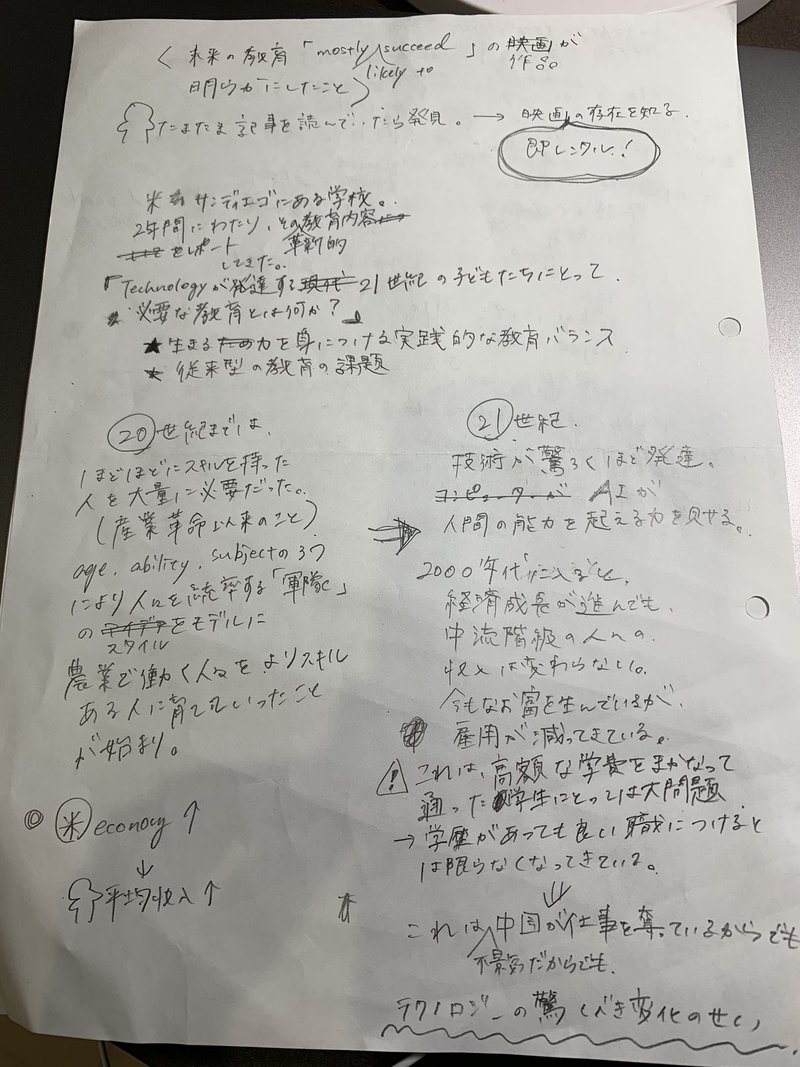 〈 未来の教育「mostly likely to succeed」の映画が
作品
明らかにしたこと〉
たまたま記事を読んでいたら発見。→ 映画の存在を知る.
即レンタル!
米 サンディエゴにある学校。
2年間にわたり、その教育内容
革新的
をレポート
してきた。
「Technologyが発達する現代 21世紀の子どもたちにとって
必要な教育とは何か?」
★ 生きる力を身につける実践的な教育バランス
★ 従来型の教育の課題
⑳世紀までは、
ほどほどにスキルを持った
人を大量に必要だった。
(産業革命以来のこと)
age, ability, subjectの3つ
により人々を統率する「軍隊」
の アイデア をモデルに
スタイル
農業で働く人々をよりスキル
ある人に育てていったこと
が始まり。
◎ ㊍ economy ↑
↓
平均収入↑
㉑世紀.
技術が驚ろくほど発達。
コンピューターが AIが
人間の能力を起える力を見せる。
2000年代に入ると、
経済成長が進んでも、
中流階級の人々の、
収入は変わらない。
今もなお富を生んでいるが、
雇用が減ってきている。
これは、高額な学費をまかなって
通った学生にとっては大問題
→ 学歴があっても良い職につけると
は限らなくなってきている。
⇓
これは中国が仕事を奪っているからでも
不景気だからでも、
テクノロジーの驚くべき変化のせい